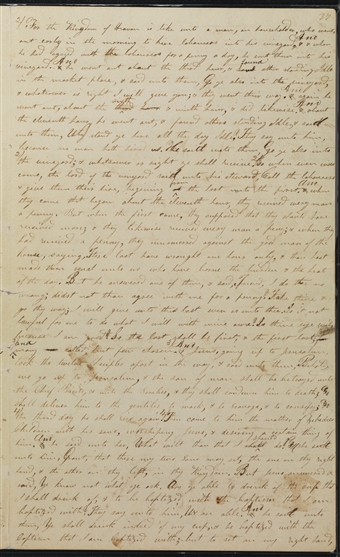 For the Kingdom of Heaven is like unto a man, an householder, who went
out early in the morning to hire labourers into his vineyard, & when
he had agreed with the labourers for a penny a day, he sent them into his
vineyard. & he went out about the third hour, & found others standing idle
in the market place, & said unto them, Go ye also into the vineyard,
& whatsoever is right I will give you; & they went their way. Again he
went out, about the sixth & ninth hour, & did likewise, & about
the eleventh hour, he went out, & found others standing idle, & saith
unto them, Why stand ye here all the day idle? They say unto him,
because no man hath hired us. He saith unto them, Go ye also into
the vineyard, & whatsoever is right ye shall receive. So when even was
come, the lord of the vineyard saith unto his steward, Call the labourers
& give them their hire, beginning from the last unto the first. & when
they came that began about the eleventh hour, they received every man
a penny. But when the first came, they supposed that they should have
received more; & they likewise received every man a penny; & when they
had received a penny, they murmured against the good man of the
house, saying, These last have wrought one hour only, & thou hast
made them equal unto us, who have borne the burden & the heat
of the day. But he answered one of them, & said, Friend, I do thee no
wrong; didst not thou agree with me for a penny? Take thine &
go thy way; I will give unto this last even as unto thee. Is it not
lawful for me to do what I will with mine own? Is thine eye evil
because I am good? So the last shall be first, & the first last,
many called, but few chosen. & Jesus, going up to Jerusalem,
took the twelve disciples apart in the way, & said unto them, Behold
we go up to Jerusalem, & the son of man shall be betrayed unto
the chief Priests, & unto the scribes, & they shall condemn him to death; &
shall deliver him to the gentiles to mock, & to scourge, & to crucify; &
the third day he shall rise again. Then came to him the mother of Zebedee's
children with her sons, worshiping Jesus, & desiring a certain thing of
him. & he said unto her, What wilt thou that I shall do? & she saith
unto him, Grant, that these my two sons may sit, the one on thy right
hand, & the other on thy left, in thy Kingdom. But Jesus answered &
said, Ye know not what ye ask. Are ye able to drink of the cup that
I shall drink of, & to be baptized with the baptism that I am
baptized with? They say unto him, We are able. & he saith unto
them, Ye shall drink indeed of my cup, & be baptized with the
baptism that I am baptized with; but to sit on my right hand,